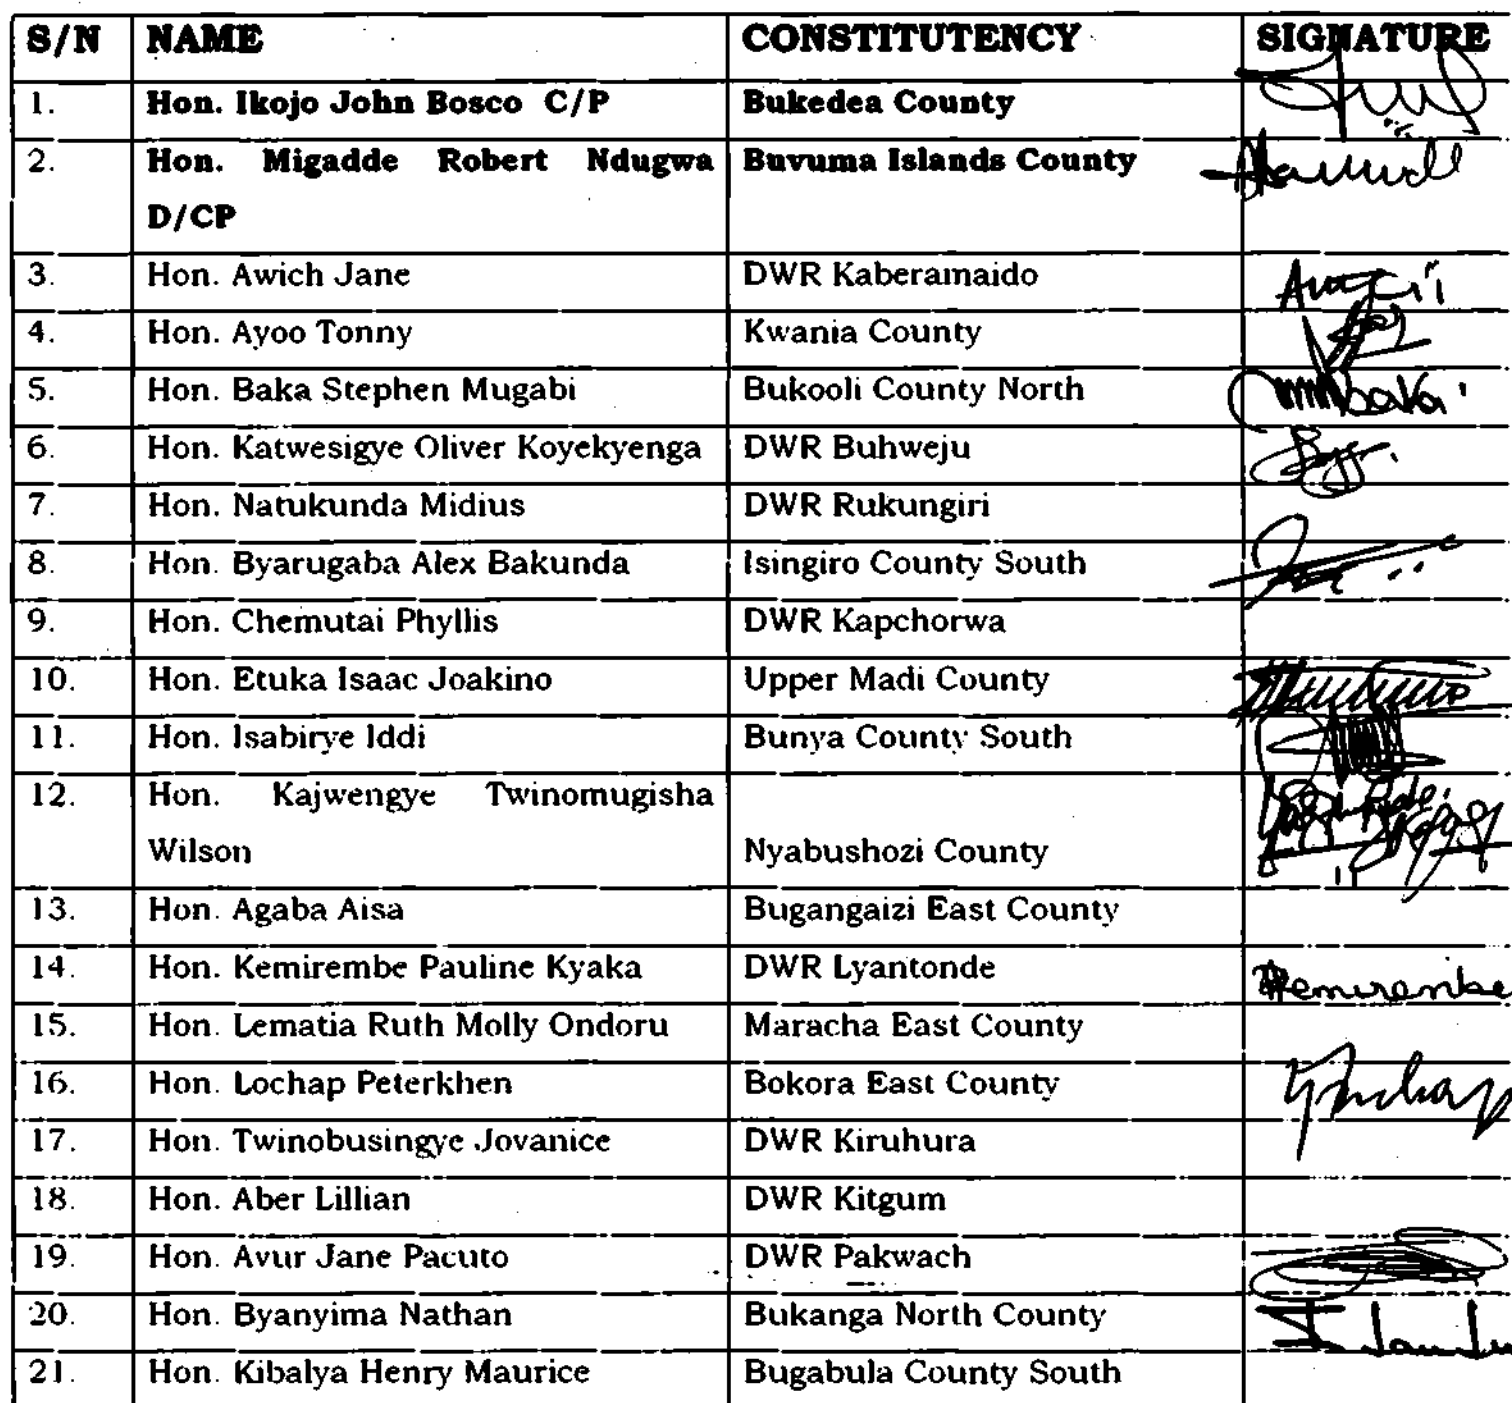 S/N NAME CONSTITUTENCY SIGNATURE
1. Hon. Ikojo John Bosco C/P Bukedea County
2. Hon. Migadde Robert Ndugwa Buvuma Islands County
D/CP
3. Hon. Awich Jane DWR Kaberamaido
4. Hon. Ayoo Tonny Kwania County
5. Hon. Baka Stephen Mugabi Bukooli County North
6. Hon. Katwesigye Oliver Koyekyenga DWR Buhweju
7. Hon. Natukunda Midius DWR Rukungiri
8. Hon. Byarugaba Alex Bakunda Isingiro County South
9. Hon. Chemutai Phyllis DWR Kapchorwa
10. Hon. Etuka Isaac Joakino Upper Madi County
11. Hon. Isabirye Iddi Bunya County South
12. Hon. Kajwengye Twinomugisha
Wilson Nyabushozi County
13. Hon. Agaba Aisa Bugangaizi East County
14. Hon. Kemirembe Pauline Kyaka DWR Lyantonde Kemirembe
15. Hon. Lematia Ruth Molly Ondoru Maracha East County
16. Hon. Lochap Peterkhen Bokora East County
17. Hon. Twinobusingye Jovanice DWR Kiruhura
18. Hon. Aber Lillian DWR Kitgum
19. Hon. Avur Jane Pacuto DWR Pakwach
20. Hon. Byanyima Nathan Bukanga North County
21. Hon. Kibalya Henry Maurice Bugabula County South